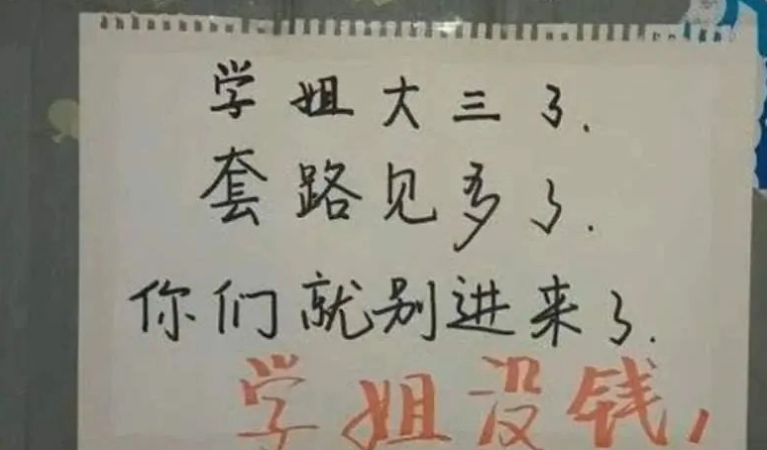 学姐大三了.
套路见多了.
你们就别进来了.
学姐没钱,